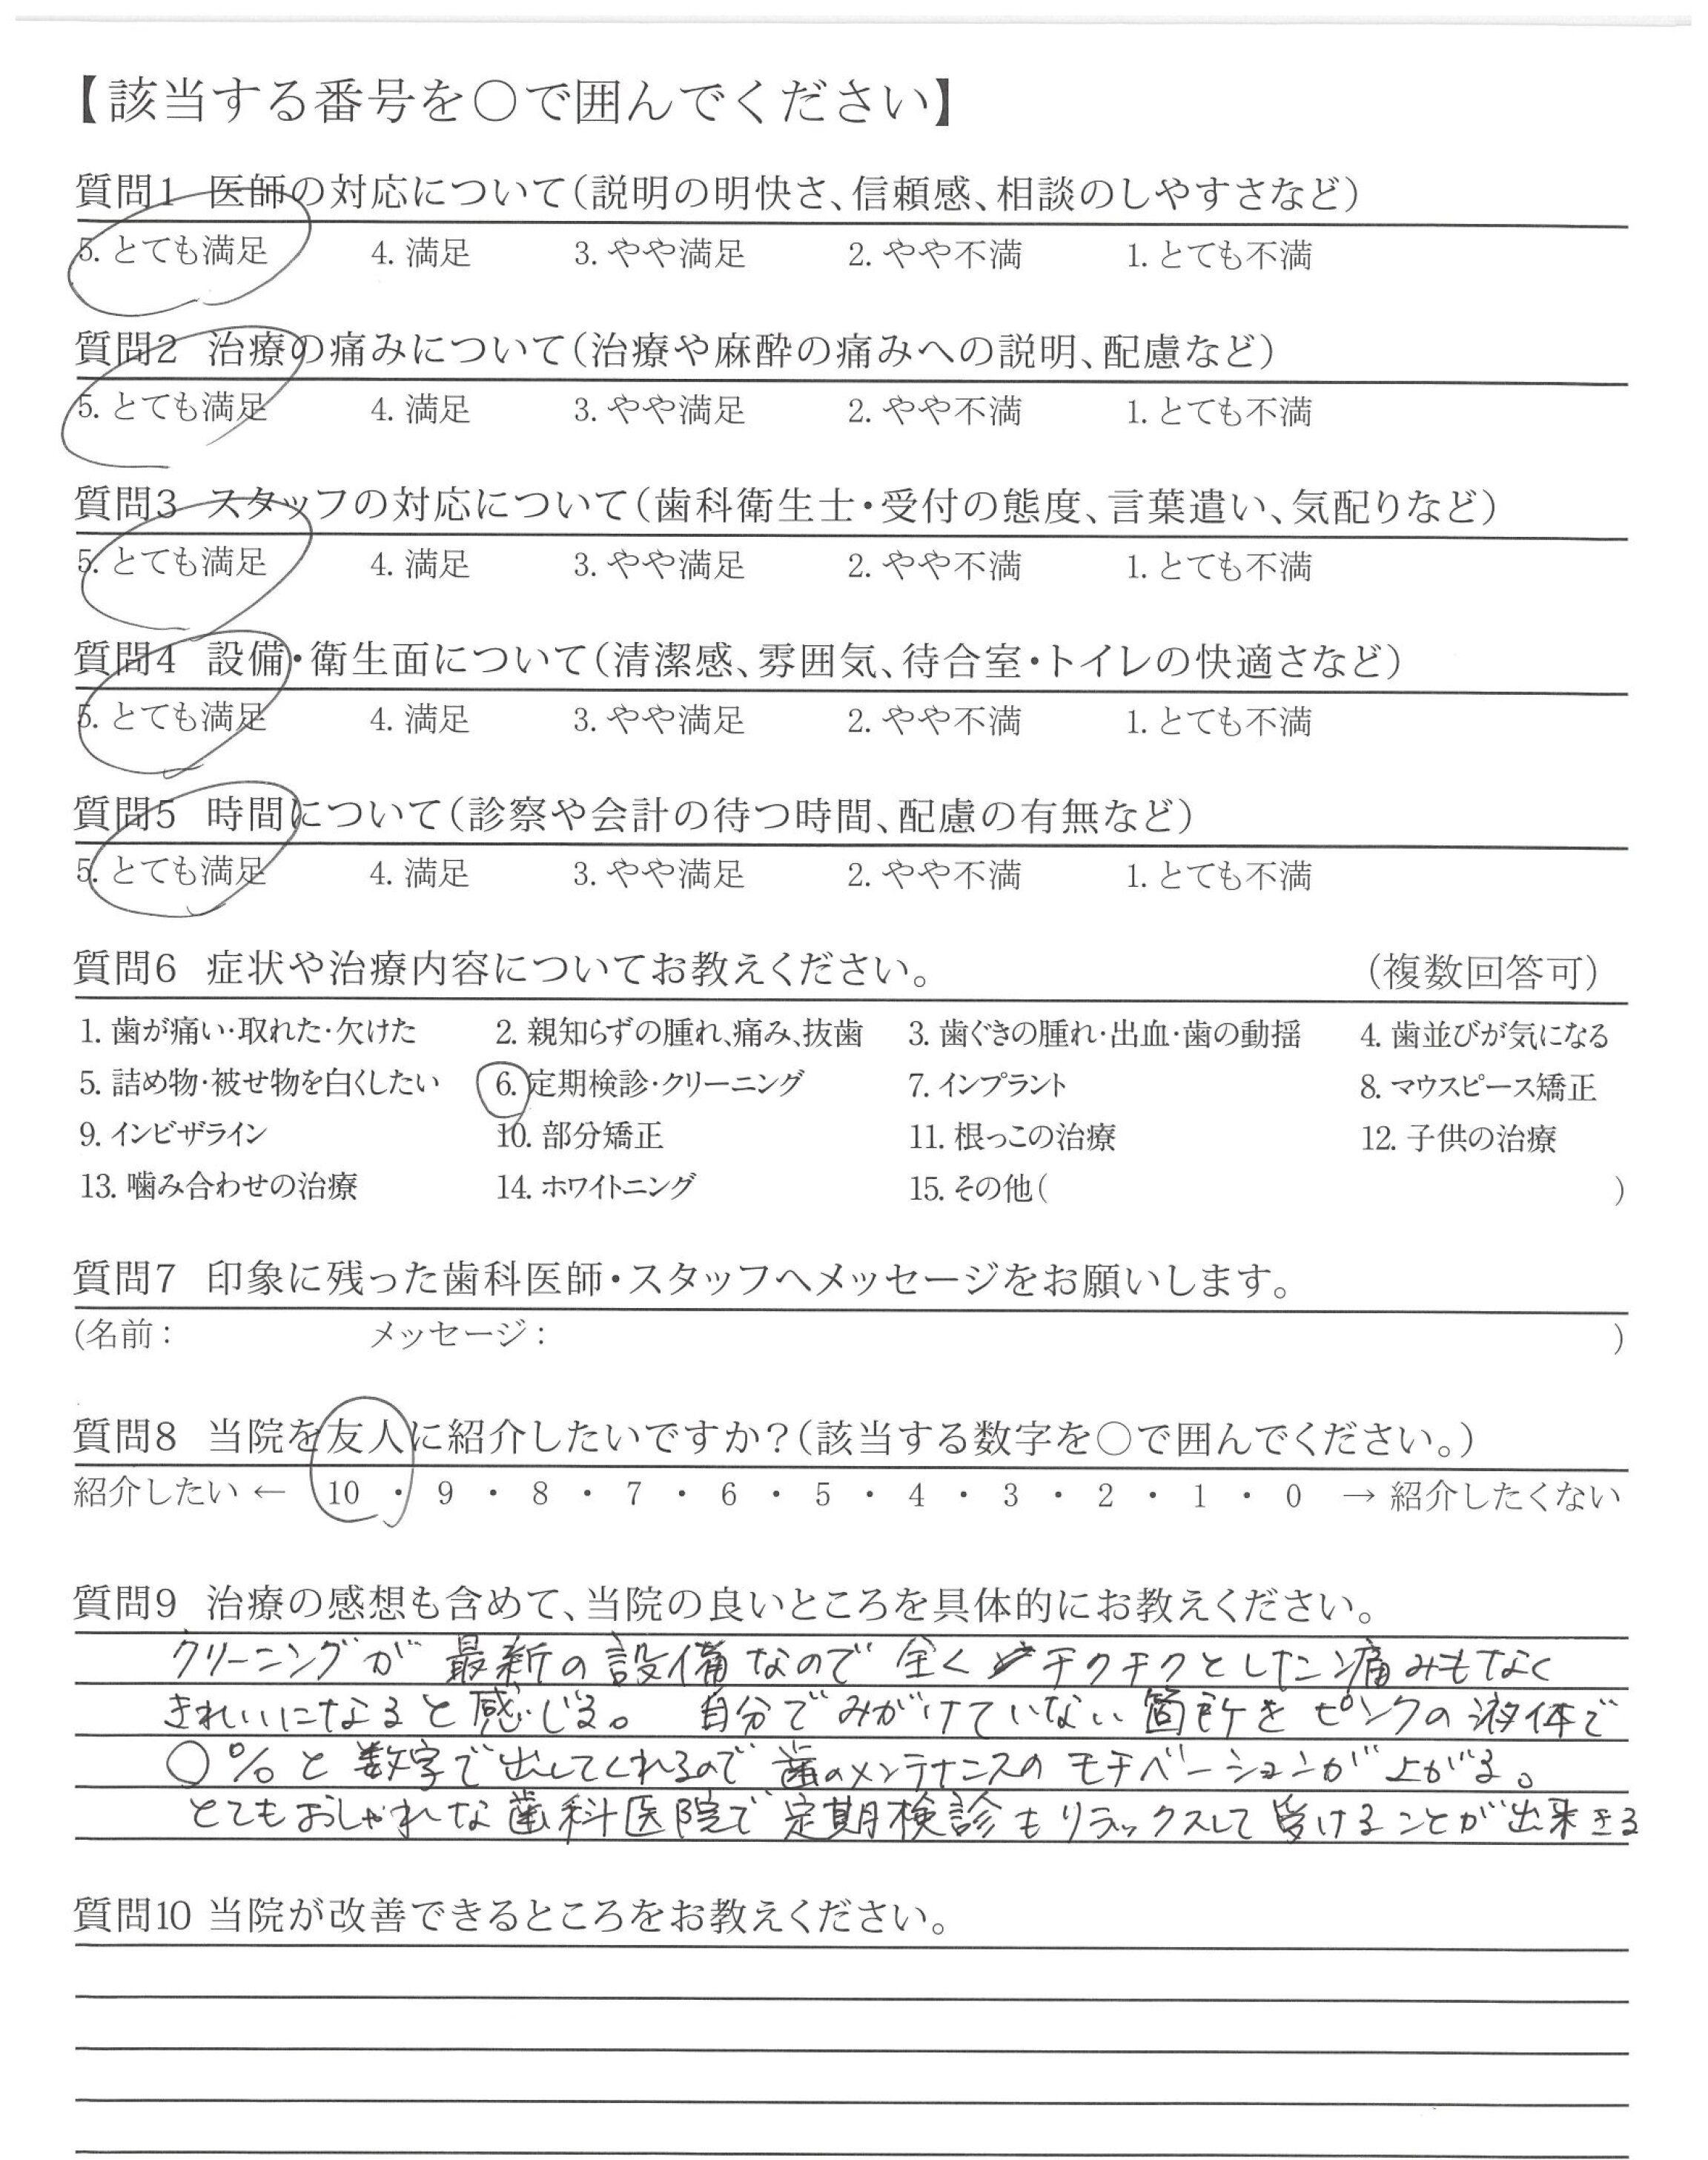 【該当する番号を○で囲んでください】
質問1 医師の対応について(説明の明快さ、信頼感、相談のしやすさなど)
5. とても満足 4. 満足 3. やや満足 2. やや不満 1. とても不満
質問2 治療の痛みについて(治療や麻酔の痛みへの説明、配慮など)
5. とても満足 4. 満足 3. やや満足 2. やや不満 1. とても不満
質問3 スタッフの対応について(歯科衛生士・受付の態度、言葉遣い、気配りなど)
5. とても満足 4. 満足 3. やや満足 2. やや不満 1. とても不満
質問4 設備・衛生面について(清潔感、雰囲気、待合室・トイレの快適さなど)
5. とても満足 4. 満足 3. やや満足 2. やや不満 1. とても不満
質問5 時間について(診察や会計の待つ時間、配慮の有無など)
5. とても満足 4. 満足 3. やや満足 2. やや不満 1. とても不満
質問6 症状や治療内容についてお教えください。 (複数回答可)
1. 歯が痛い・取れた・欠けた 2. 親知らずの腫れ、痛み、抜歯 3. 歯ぐきの腫れ・出血・歯の動揺 4. 歯並びが気になる
5. 詰め物・被せ物を白くしたい 6. 定期検診・クリーニング 7. インプラント 8. マウスピース矯正
9. インビザライン 10. 部分矯正 11. 根っこの治療 12. 子供の治療
13. 噛み合わせの治療 14. ホワイトニング 15. その他( )
質問7 印象に残った歯科医師・スタッフへメッセージをお願いします。
(名前: メッセージ: )
質問8 当院を友人に紹介したいですか?(該当する数字を○で囲んでください。)
紹介したい ← 10 ・ 9 ・ 8 ・ 7 ・ 6 ・ 5 ・ 4 ・ 3 ・ 2 ・ 1 ・ 0 → 紹介したくない
質問9 治療の感想も含めて、当院の良いところを具体的にお教えください。
クリーニングが 最新の設備なので 全く チクチクとした痛みもなく
きれいになると感じる。 自分でみがけていない箇所をピンクの液体で
○%と数字で出してくれるので歯のメンテナンスのモチベーションが上がる。
とてもおしゃれな歯科医院で定期検診もリラックスして受けることが出来きる
質問10 当院が改善できるところをお教えください。